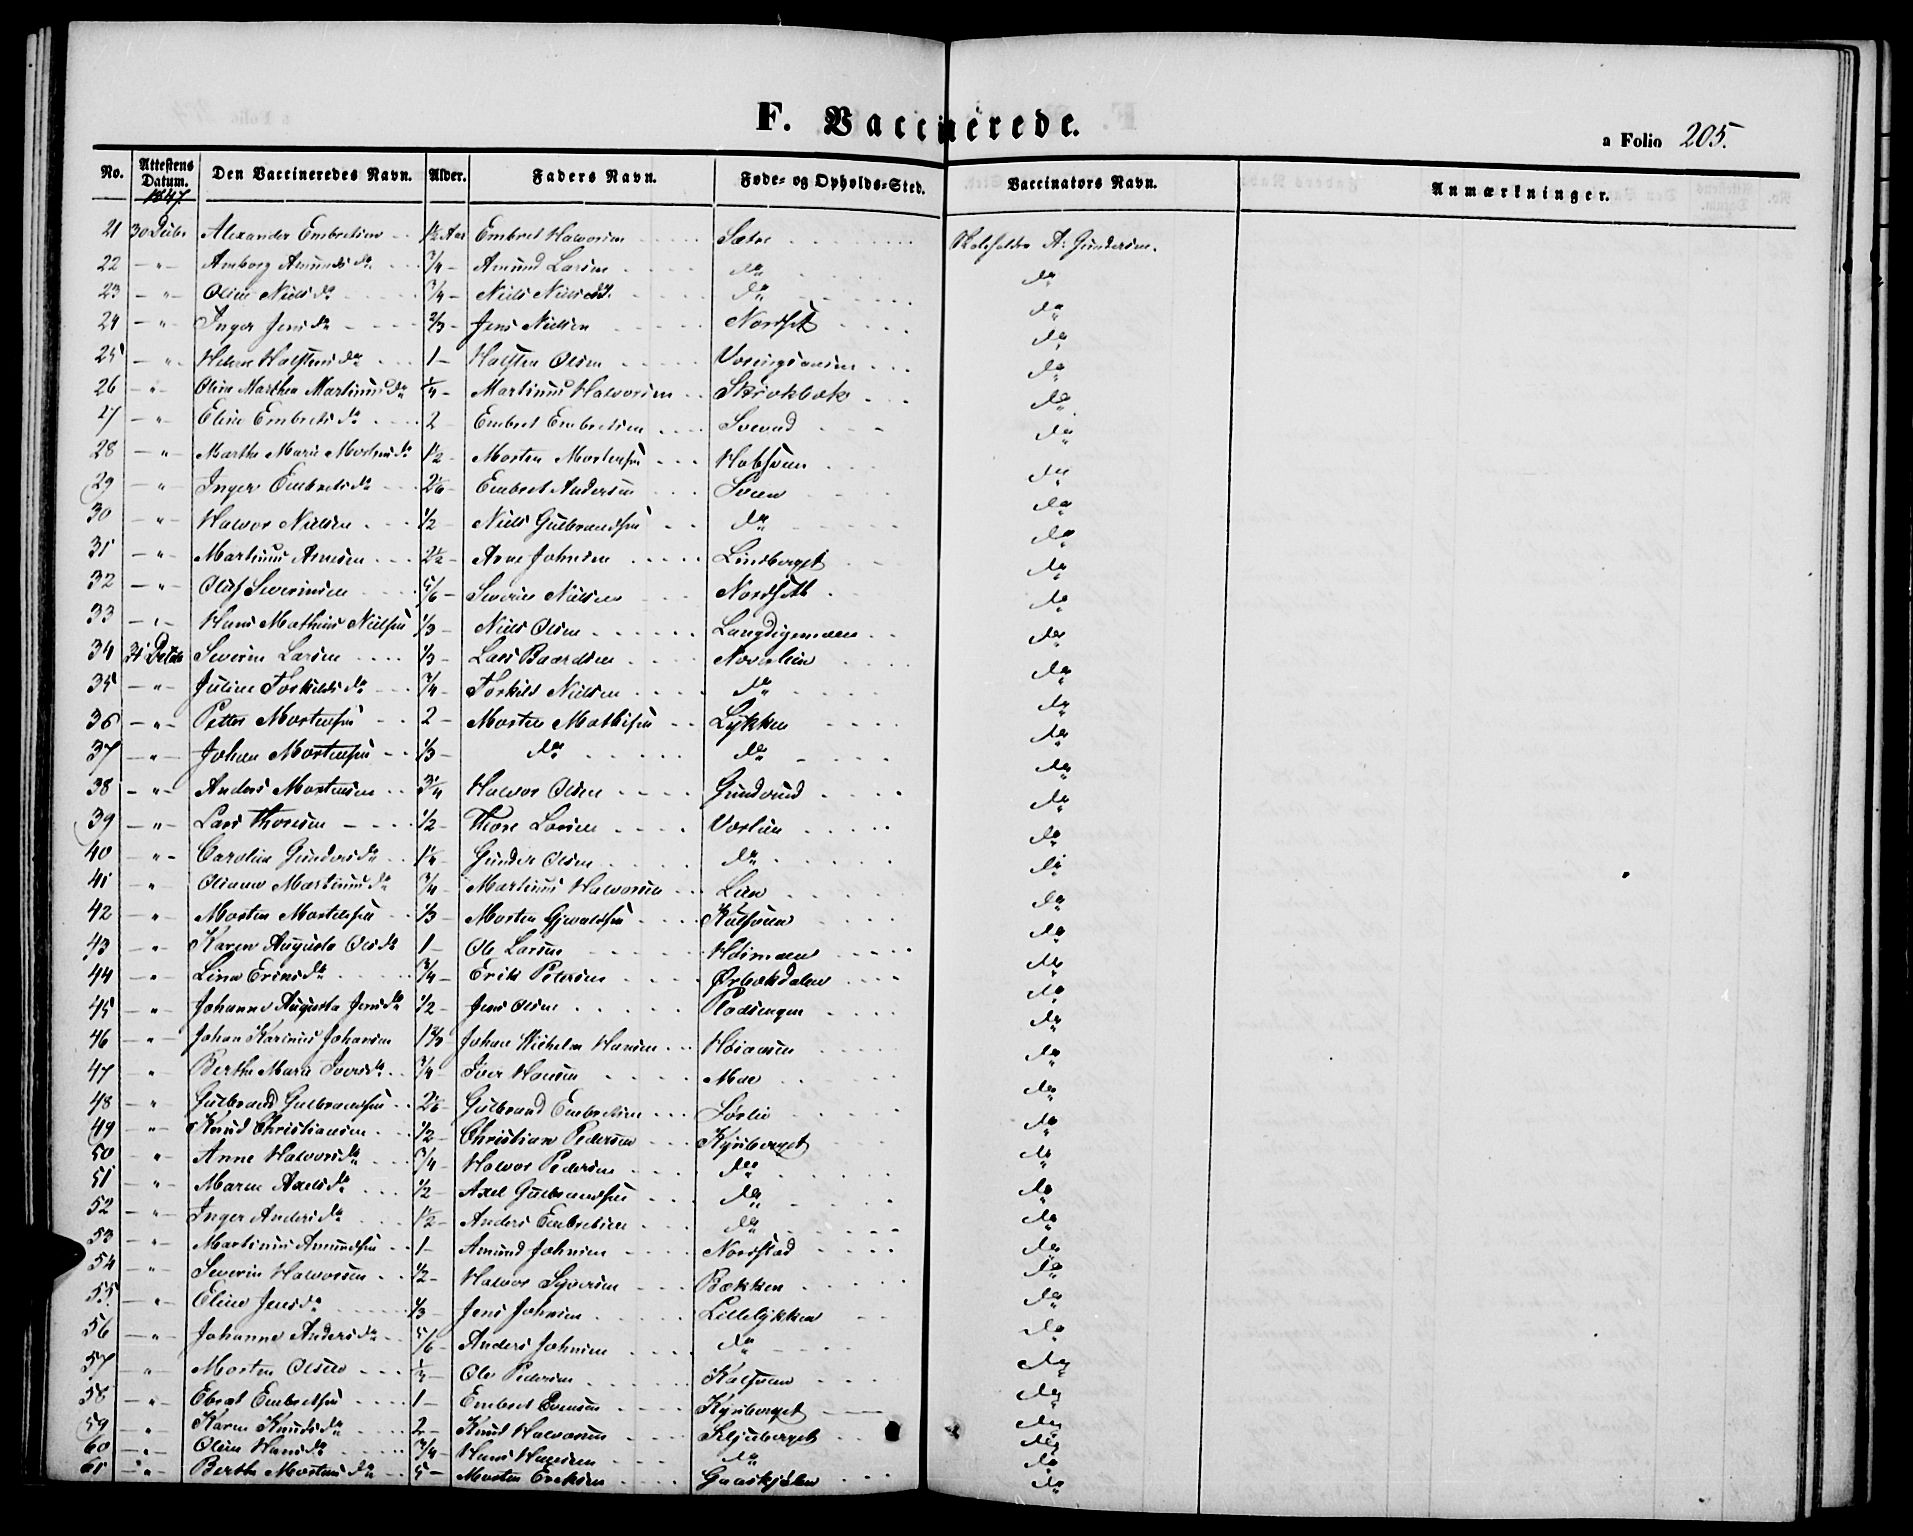 F. Vaccinerede.
a Folio 205.
No. Attestens Datum. 1847. Den Vaccineredes Navn. Alder. Faders Navn. Føde- og Opholds-Sted. Vaccinators Navn. Anmærkninger.
21 30 Alexander Embretsen 1½ Aar Embret Halvorsen Sætre A. Gundersen.
22 - " - Amborg Amundsdr 3/4 - Amund Larsen do do
23 - " - Oline Nielsdr 3/4 - Niels do do
24 - " - Inger Jensdr 2/3 - Jens Nielsen Nordset do
25 - " - Halstensdr 1 - Halsten Olsen do
26 - " - Oline Marthea Martinusdr 1/4 - Martinus Halvorsen do
27 - " - Eline Embretsdr 2 - Embret Embretsen do
28 - " - Marthe Marie Mortensdr 1½ - Morten Mortensen do
29 - " - Inger Embretsdr 2 1/6 - Embret Andersen do
30 - " - Halvor Nielsen 1/2 - Niels Gulbrandsen do do
31 - " - Martinus Arnesen 2½ - Arne Johnsen Lindberget do
32 - " - Oluf Severinsen 5/6 - Severin Nielsen Nordseth do
33 - " - Hans Mathias Nielsen 1/3 - Niels Olsen do
34 31 Severin Larsen 1/3 - Lars Baardsen do
35 - " - Juline Torkildsdr 3/4 - Torkild Nielsen do do
36 - " - Petter Mortensen 2 - Morten Mathisen Løkken do
37 - " - Johan Mortensen 1/3 - do do do
38 - " - Anders Mortensen 3 1/4 Halvor Olsen do
39 - " - Lars Thoresen 1/2 - Thore Larsen do
40 - " - Caroline Gundersdr 1¼ - Gunder Olsen do do
41 - " - Martinusdr 3/4 - Martinus Halvorsen Lien do
42 - " - Morten Mortensen 1/3 - Morten do
43 - " - Karen Augusta Olsdr 1 - Ole Larsen do
44 - " - Lina Eriksdr 3/4 - Erik Petersen Ørbækdalen do
45 - " - Johanne Augusta Jensdr 1/2 - Jens Olsen Pladsengen do
46 - " - Johan Karinus Johansen 1 2/3 Johan Wilhelm Hansen do
47 - " - Berthe Marie Iversdr 3/4 - Iver Hansen Moe do
48 - " - Gulbrand Gulbrandsen 2 1/6 - Gulbrand Embretsen Sørlie do
49 - " - Knud Christiansen 1/2 - Christian Pedersen Kynberget do
50 - " - Anne Halvorsdr 3/4 - Halvor Pedersen do do
51 - " - Maren Axelsdr 1/2 - Axel Gulbrandsen do do
52 - " - Inger Andersdr 1½ - Anders Embretsen do do
53 - " - Martinus Amundsen 1 - Amund Johnsen Nordstad do
54 - " - Severin Halvorsen 1/2 - Halvor Syversen Bækken do
55 - " - Eline Jensdr 1/3 - Jens Johnsen Lilleløkken do
56 - " - Johanne Andersdr 5/6 - Anders Johnsen do do
57 - " - Morten Olsen 1/4 - Ole Pedersen do
58 - " - Embretsen 1 - Embret Evensen Kynberget do
59 - " - Karen Knudsdr 2 - Knud Halvorsen do
60 - " - Oline Hansdr 3/4 - Hans Hansen do do
61 - " - Berthe Mortensdr 5 - Morten Ericksen Gaaskjølen do